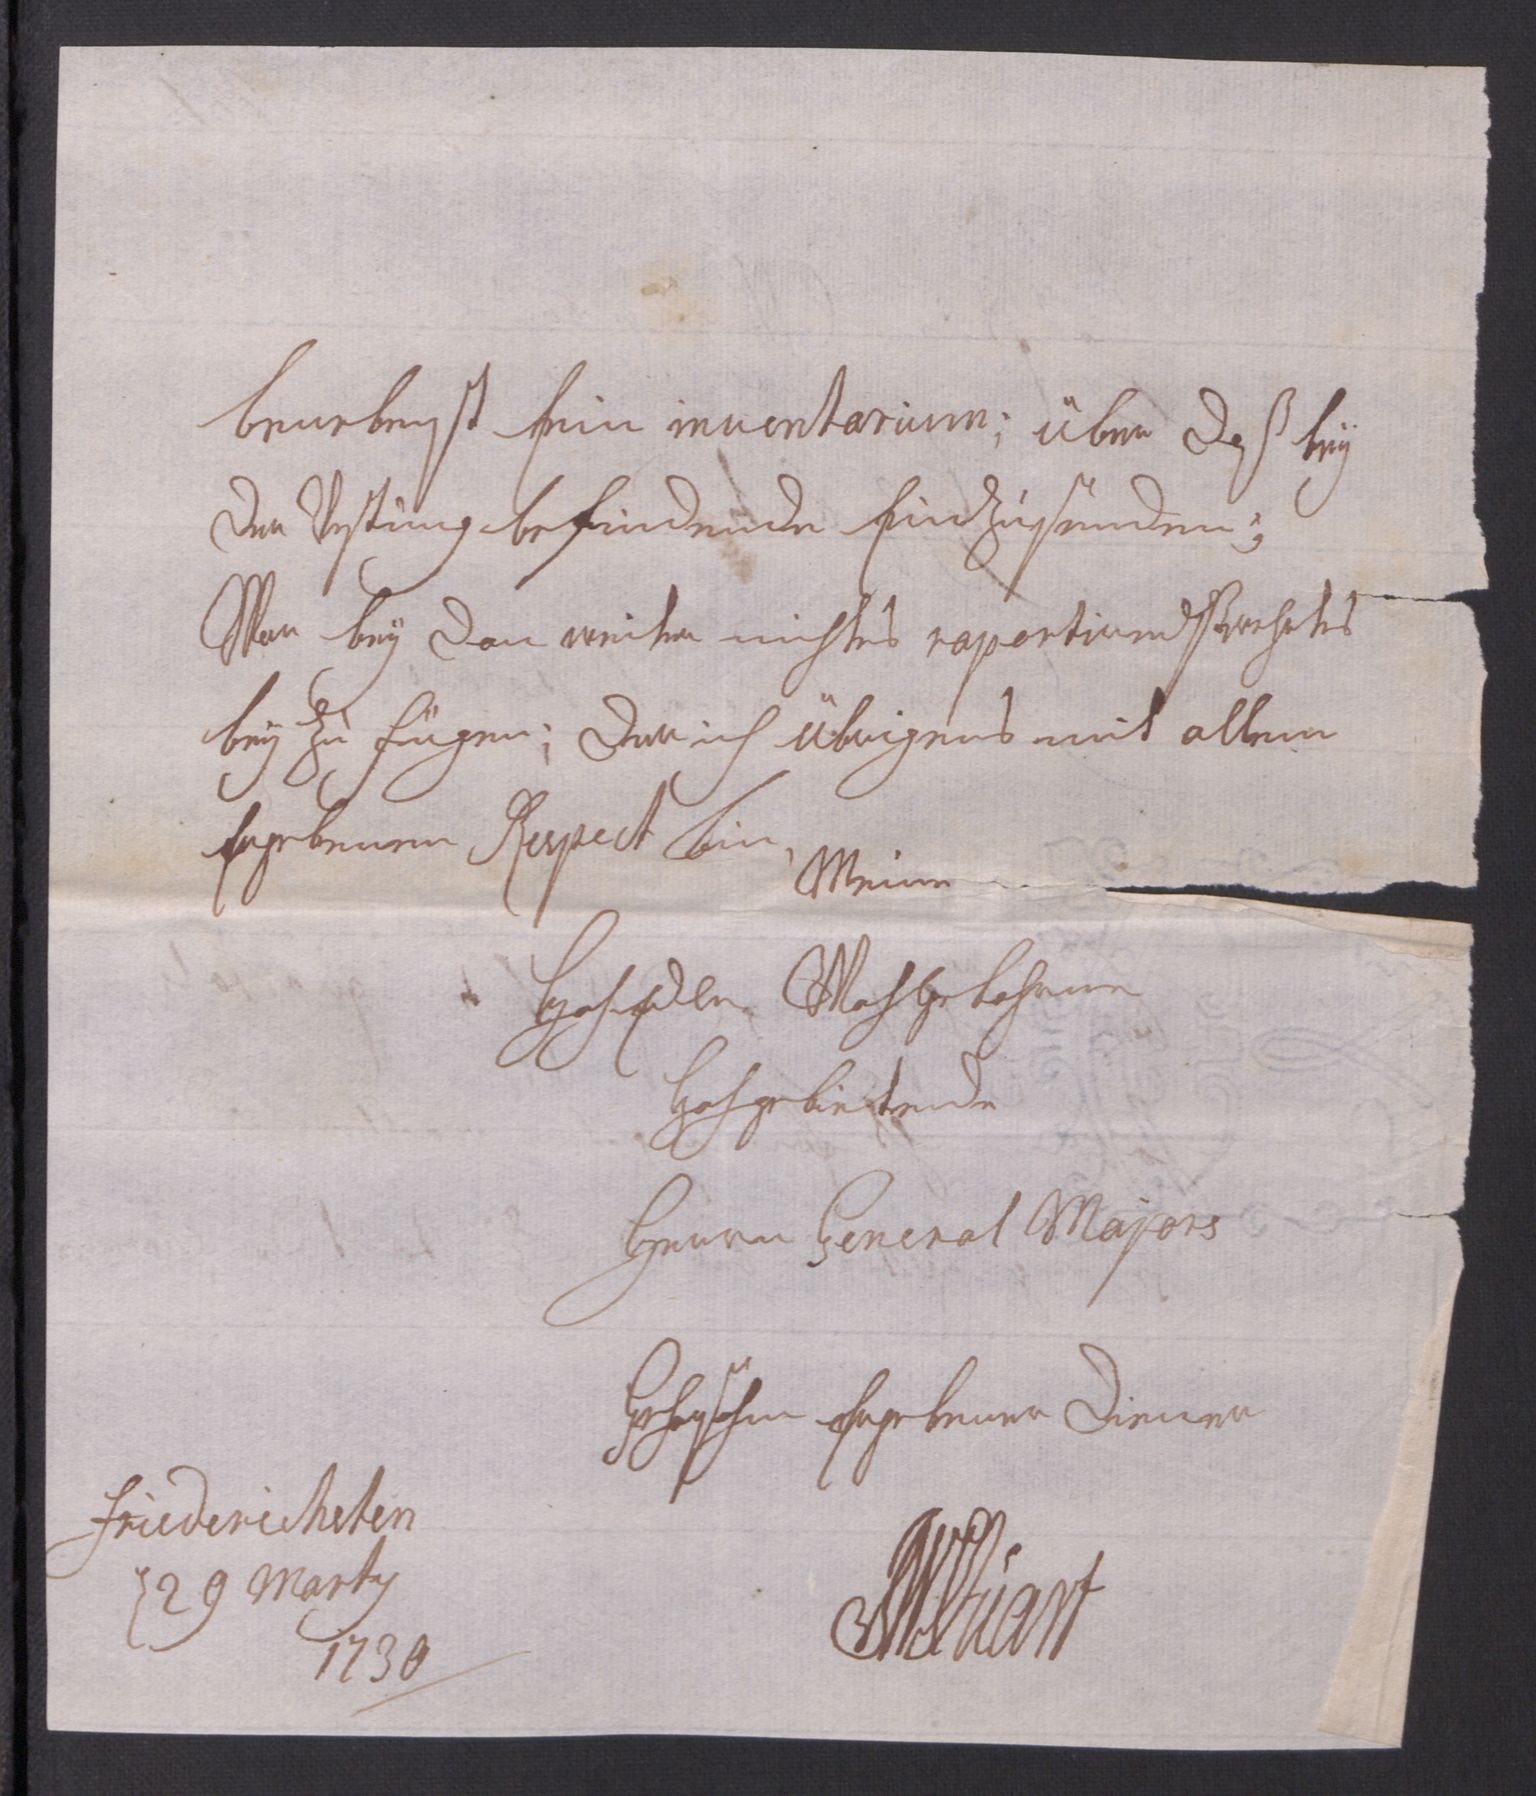 ein inventarium; über daß beÿ
der Vestung befindende einzusenden;
War beÿ dan weiter nichtes raportirend
beÿ zu fügen; Der ich übrigens mit allem
ergebenen Respect bin,
Meine
HochEdle, Wohlgebohrne
Hochgebietende
Herrn General Majors
Gehorsahm Ergebener Diener
Friederichsten
29 Marty
1730
Stuart